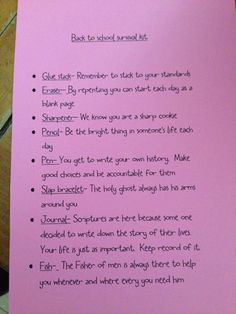 Back to school survival list
• Glue stick- Remember to stick to your standards
• Eraser- By repenting you can start each day as a
blank page
• Sharpener- We know you are a sharp cookie
• Pencil- Be the bright thing in someone's life each
day
• Pen- You get to write your own history. Make
good choices and be accountable for them
• Slap bracelet- The holy ghost always has his arms
around you
• Journal- Scriptures are here because some one
decided to write down the story of their lives.
Your life is just as important. Keep record of it.
• Fish- The Fisher of men is always there to help
you whenever and where every you need him